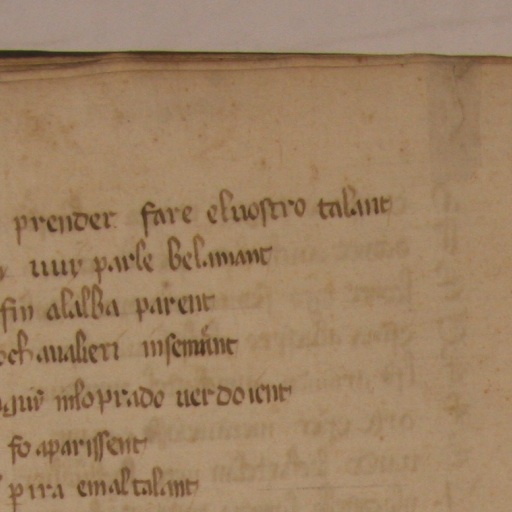 prender fare eluostro talant
uuy parle belamant
fin alalba parent
ochaualieri insemant
inloprado uerdoient
fo aparissent
ira emaltalant